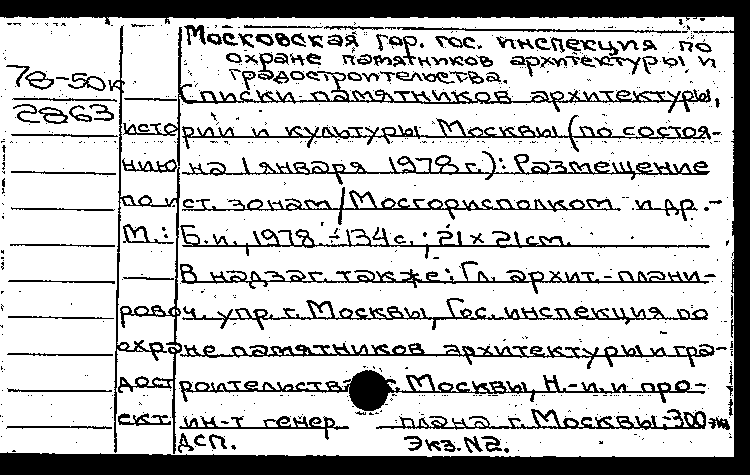 Московская гор. гос. инспекция по
охране памятников архитектуры и
градостроительства.
78-50к
2863
Списки памятников архитектуры,
истории и культуры Москвы (по состоя-
нию на 1 января 1978 г.): Размещение
по ист. зонам / Мосгорисполком и др. -
М.: Б.и., 1978. - 134 с.; 21 x 21 см.
В надзаг. также: Гл. архит.-плани-
ровоч. упр. г. Москвы, Гос. инспекция по
охране памятников архитектуры и гра-
достроительств г. Москвы, Н.-и. и про-
ект. ин-т генер плана г. Москвы. 300 экз
ДСП. Экз. N2.